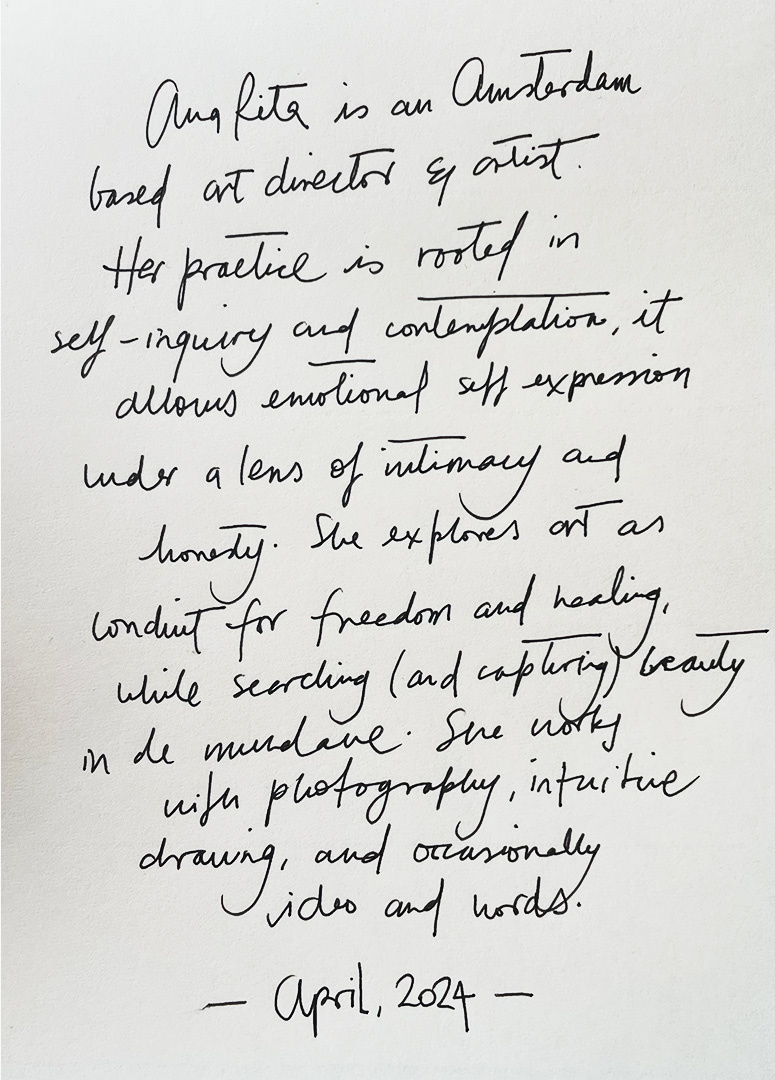 Ana Rita is an Amsterdam
based art director & artist.
Her practice is rooted in
self-inquiry and contemplation, it
allows emotional self expression
under a lens of intimacy and
honesty. She explores art as
conduit for freedom and healing,
while searching (and capturing) beauty
in de mundane. She works
with photography, intuitive
drawing, and occasionally
video and words.
— April, 2024 —